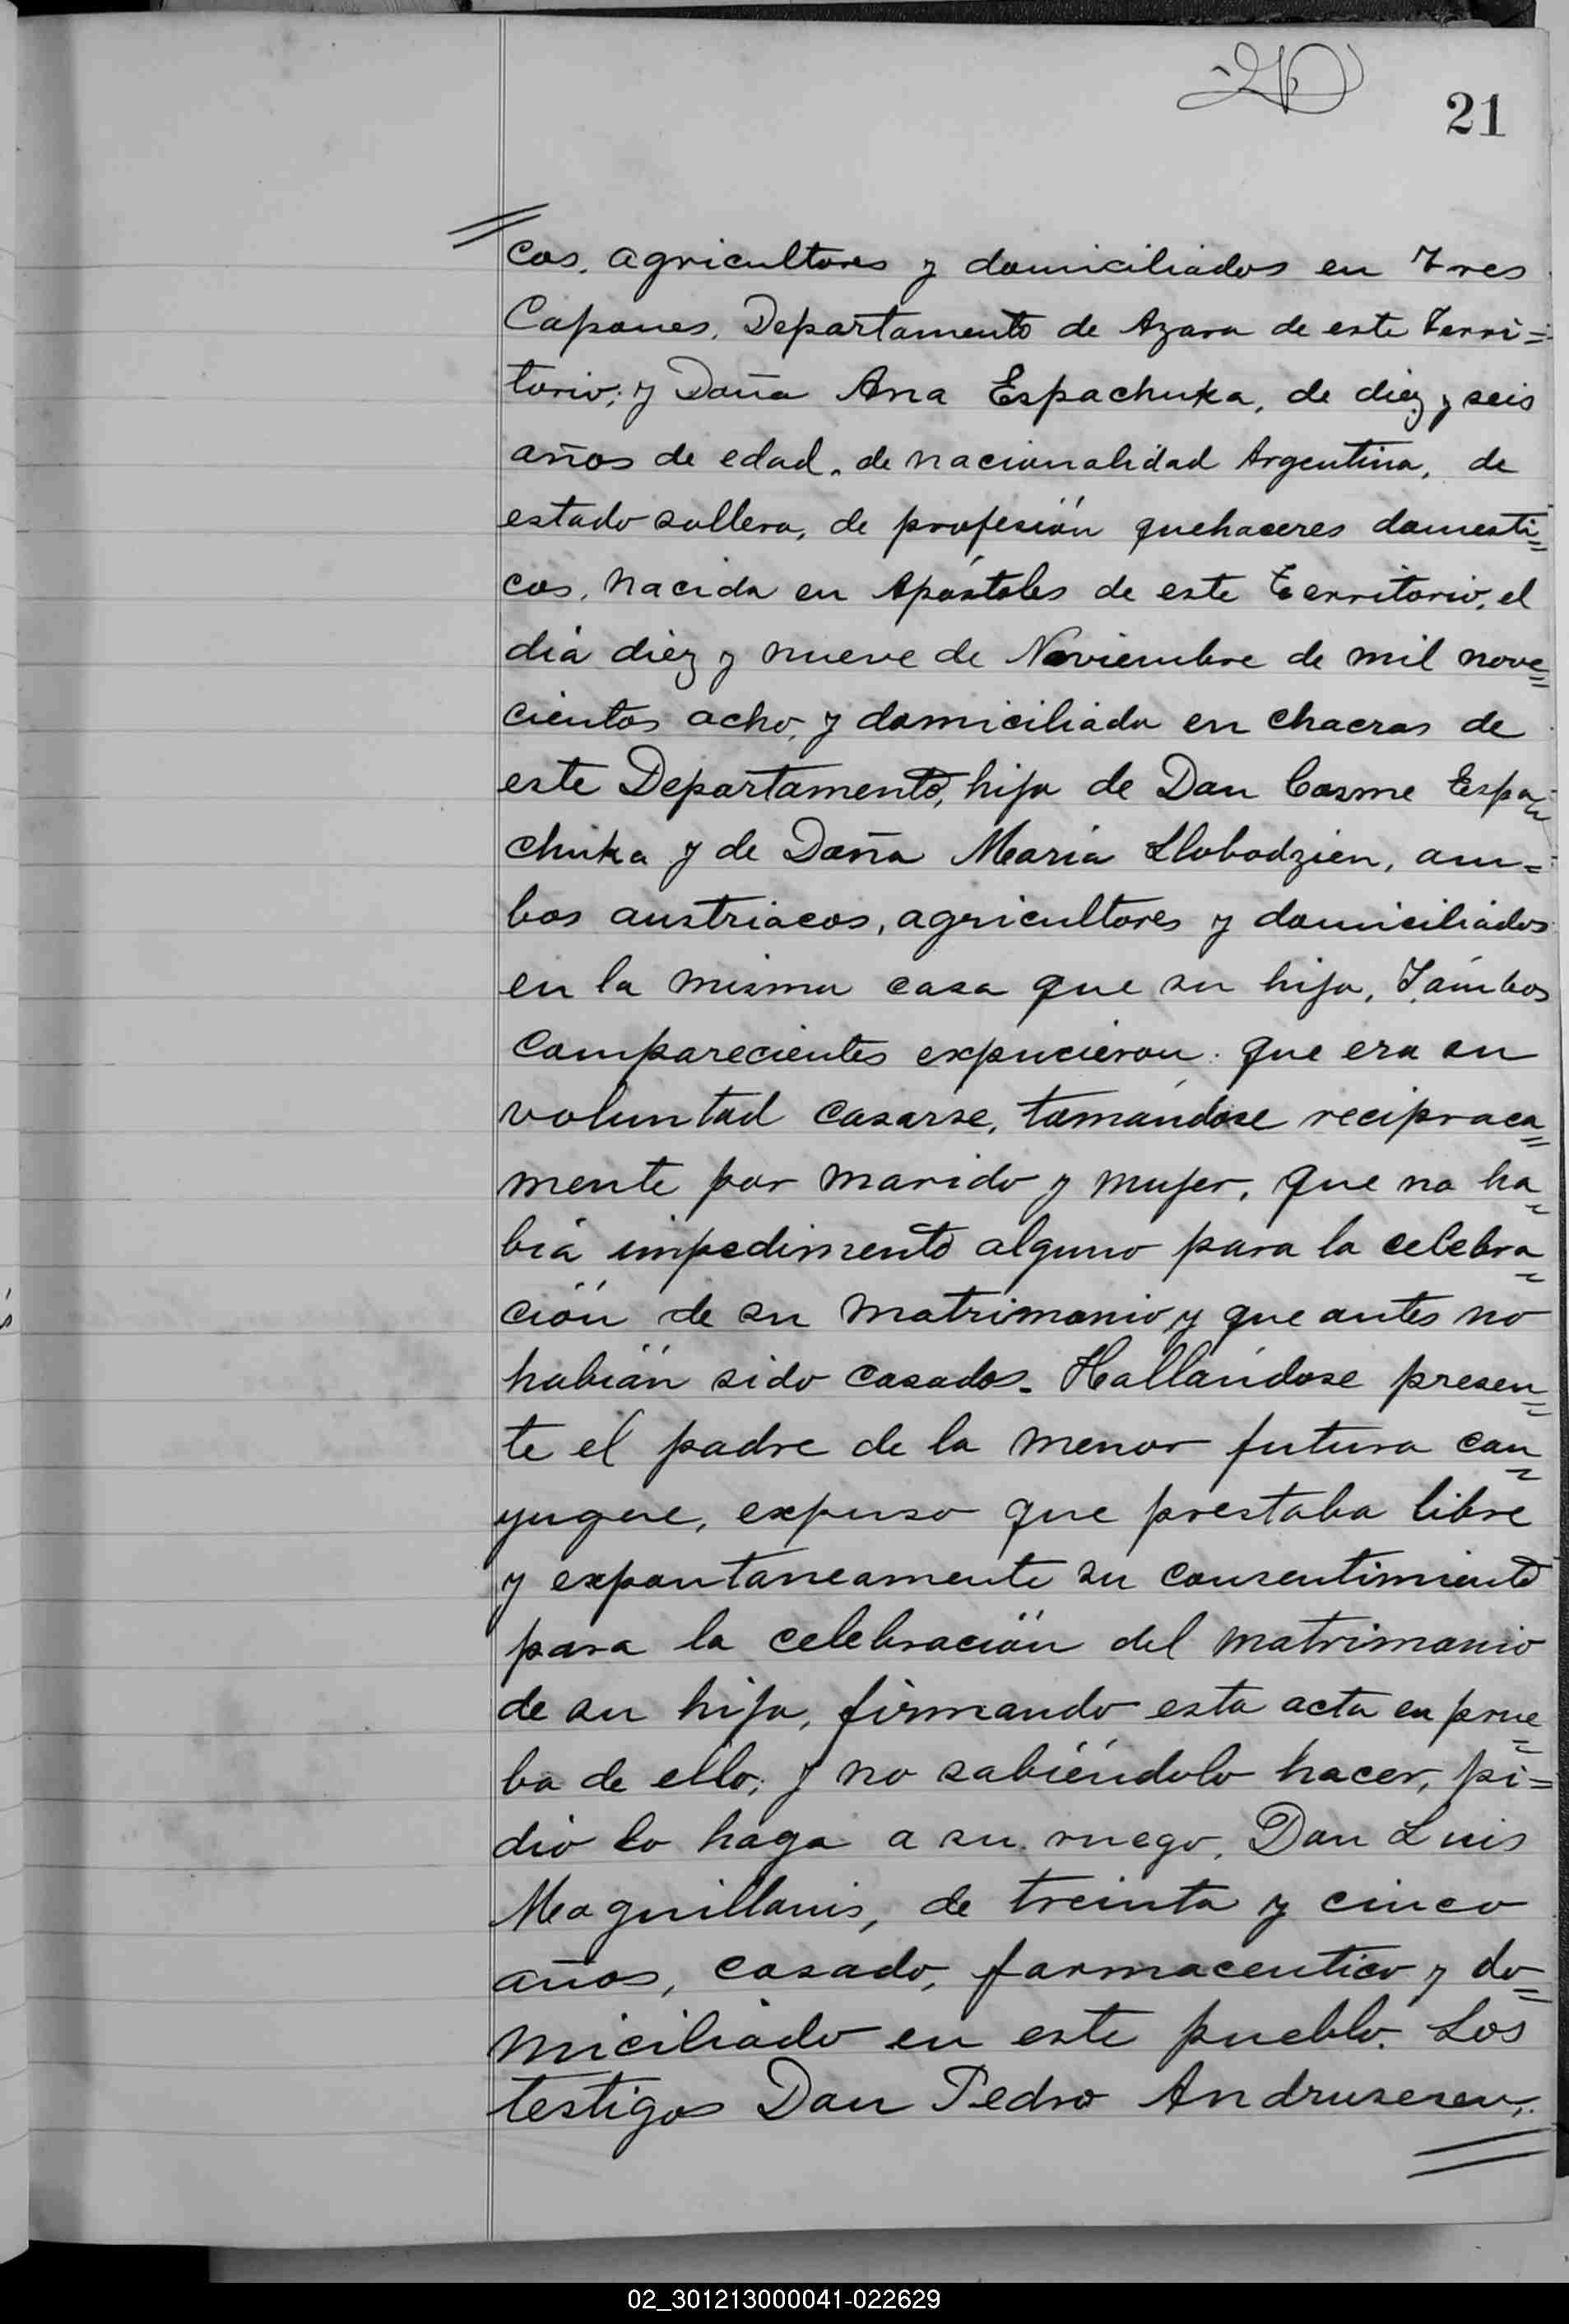 21
cos, agricultores y domiciliados en Tres
Capones, Departamento de Azara de este Terri=
torio; y Doña Ana Espachuka, de diez y seis
años de edad, de nacionalidad Argentina, de
estado soltera, de profesión quehaceres domesti=
cos, nacida en Apóstoles de este Territorio, el
día diez y nueve de Noviembre de mil nove=
cientos ocho, y domiciliada en chacras de
este Departamento, hija de Don Cosme Espa=
chuka y de Doña María Slobodzien, am=
bos austriacos, agricultores y domiciliados
en la misma casa que su hija, Y ambos
comparecientes expucieron: que era su
voluntad casarse, tomándose reciproca=
mente por marido y mujer, que no ha=
bía impedimento alguno para la celebra=
ción de su matrimonio y que antes no
habían sido casados. Hallándose presen=
te el padre de la menor futura con=
yugue, expuso que prestaba libre
y expontaneamente su consentimiento
para la celebración del matrimonio
de su hija, firmando esta acta en prue=
ba de ello; y no sabiéndolo hacer, pi=
dió lo haga a su ruego, Don Luis
Maquillanis, de treinta y cinco
años, casado, farmaceutico y do=
miciliado en este pueblo. Los
testigos Don Pedro Andruseseu,
02_301213000041-022629